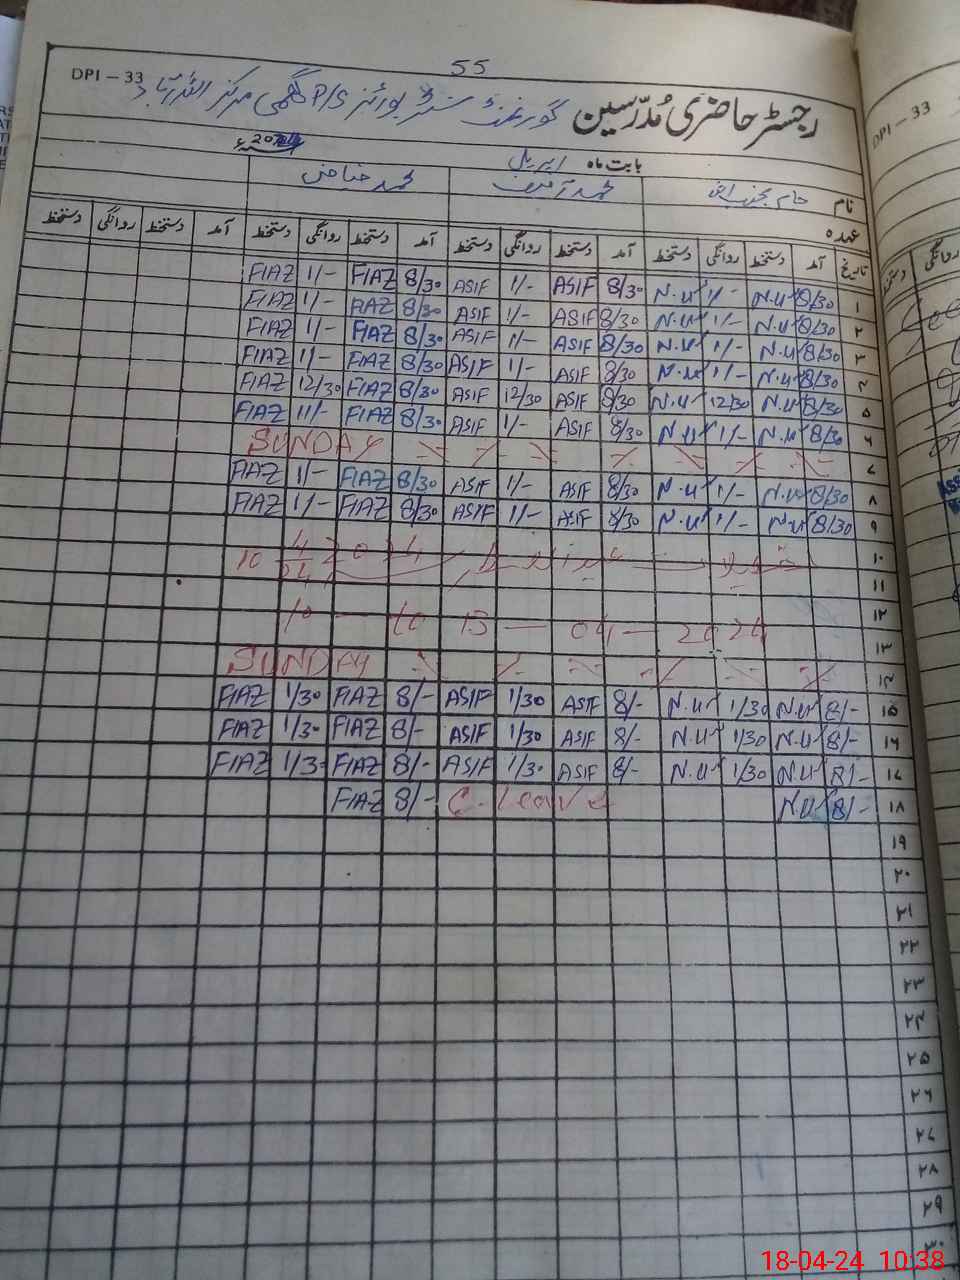 55
DPI – 33
رجسٹر حاضری مُدرّسین گورنمنٹ بوائز P/S مرکز
بابت ماہ اپریل 2024
نام محمد آصف محمد فیاض
عہدہ
تاریخ آمد دستخط روانگی دستخط آمد دستخط روانگی دستخط آمد دستخط روانگی دستخط آمد دستخط روانگی دستخط
۱ 8/30 N.U 1/- N.U 8/30 ASIF 1/- ASIF 8/30 FIAZ 1/- FIAZ
۲ 8/30 N.U 1/- N.U 8/30 ASIF 1/- ASIF 8/30 FIAZ 1/- FIAZ
۳ 8/30 N.U 1/- N.U 8/30 ASIF 1/- ASIF 8/30 FIAZ 1/- FIAZ
۴ 8/30 N.U 1/- N.U 8/30 ASIF 1/- ASIF 8/30 FIAZ 1/- FIAZ
۵ 8/30 N.U 12/30 N.U 8/30 ASIF 12/30 ASIF 8/30 FIAZ 12/30 FIAZ
۶ 8/30 N.U 1/- N.U 8/30 ASIF 1/- ASIF 8/30 FIAZ 1/- FIAZ
۷ SUNDAY
۸ 8/30 N.U 1/- N.U 8/30 ASIF 1/- ASIF 8/30 FIAZ 1/- FIAZ
۹ 8/30 N.U 1/- N.U 8/30 ASIF 1/- ASIF 8/30 FIAZ 1/- FIAZ
۱۰
۱۱
۱۲
۱۳ 10 — to 13 — 04 — 2024
۱۴ SUNDAY
۱۵ 8/- N.U 1/30 N.U 8/- ASIF 1/30 ASIF 8/- FIAZ 1/30 FIAZ
۱۶ 8/- N.U 1/30 N.U 8/- ASIF 1/30 ASIF 8/- FIAZ 1/30 FIAZ
۱۷ 8/- N.U 1/30 N.U 8/- ASIF 1/30 ASIF 8/- FIAZ 1/30 FIAZ
۱۸ 8/- N.U C. Leave 8/- FIAZ
۱۹
۲۰
۲۱
۲۲
۲۳
۲۴
۲۵
۲۶
۲۷
۲۸
۲۹
۳۰
DPI – 33
روانگی
18-04-24 10:38